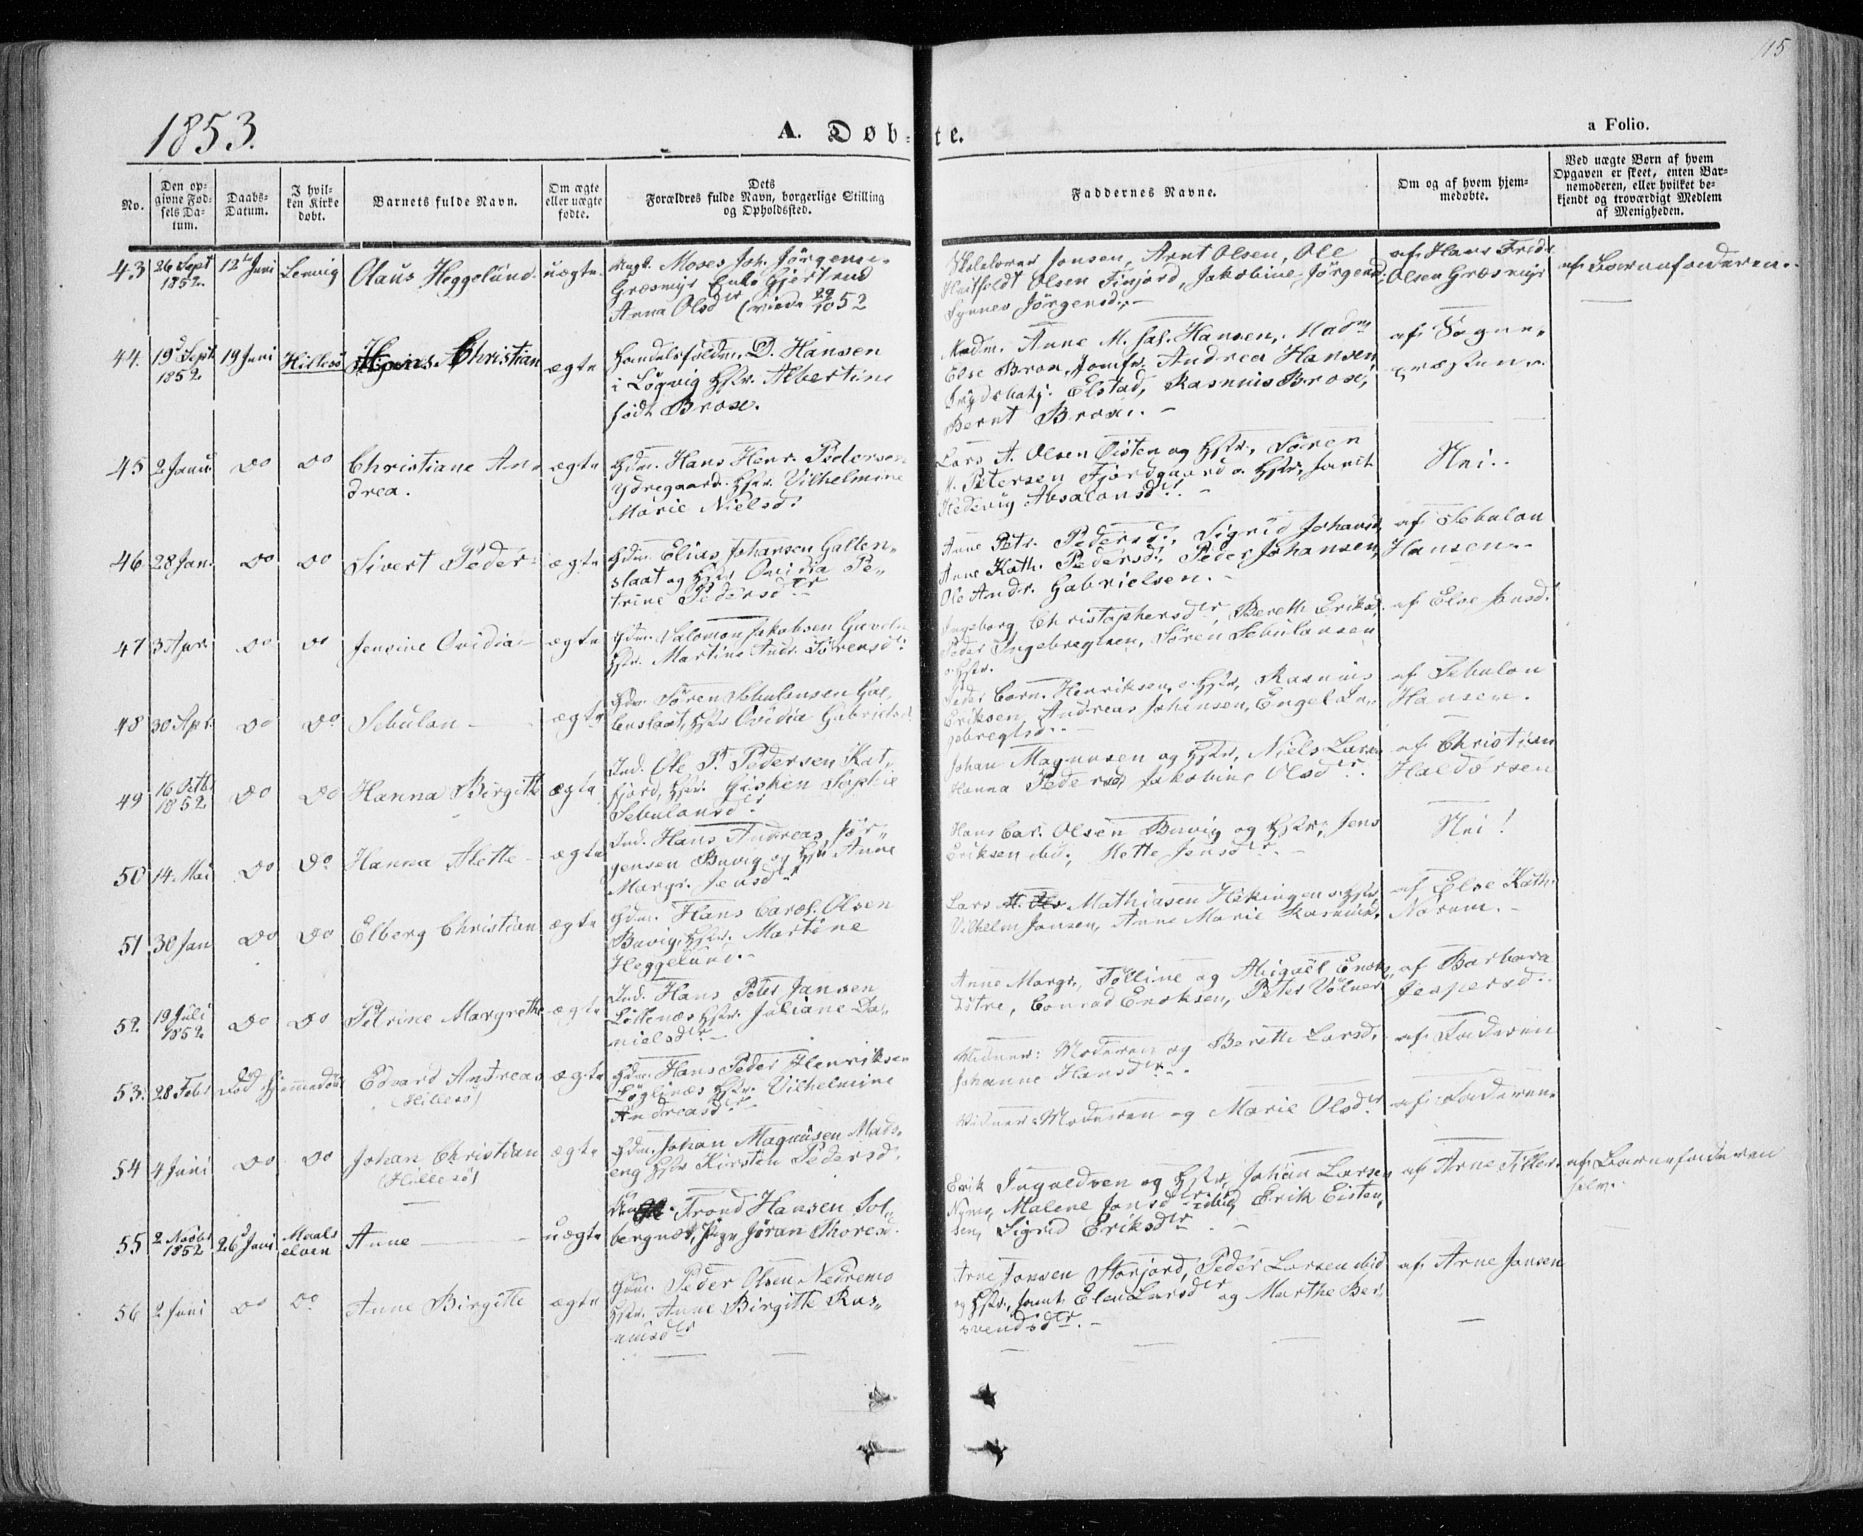 115
1853.
A. Døbte.
a Folio.
No.
Den opgivne Fødsels Datum.
Daabs-Datum.
I hvilken Kirke døbt.
Barnets fulde Navn.
Om ægte eller uægte fødte.
Dets Forældres fulde Navn, borgerlige Stilling og Opholdssted.
Faddernes Navne.
Om og af hvem hjemmedøbte.
Ved uægte Børn af hvem Opgaven er skeet, enten Barnemoderen, eller hvilket bekjendt og troværdigt Medlem af Menigheden.
43 26 Sept 1852. 12te Juni Lenvig Olaus Heggelund uægte
Moses Joh. Jørgens.
Græsmyr Enke Gjertrud
Anna Olsdr (viede 29/10 52
Skolelærer Jonsen, Arnt Olsen, Ole
Huitfeldt Olsen Finjord, Jakobine Jørgensd.
Synnes Jørgensd.
af Hans Fredr.
Olsen Græsmyr
af Barnefaderen.
44. 19d Sept 1852. 19 Juni Hillesø Hans Christian ægte
Handelsfuldm. D. Hansen
i Løgvig Hstr. Albertine
født Brose.
Madm. Anne M. sal. Hansen, Madm
Else Brox, Jomfr. Andrea Hansen
Elstad, Rasmus Brose,
Bernt Brose.
af Sogne-
præsten.
45 2 Janu do do Christiane An-
drea. ægte
Gdm. Hans Henr. Pedersen
Ydregaard. Hstr. Vilhelmine
Marie Nielsd.
Lars A. Olsen Øisten og Hstr, Søren
Petersen Fjordgaard o. Hstr, samt
Hedevig Absalonsdr.
Nei.
46 28 Jan. do do Sivert Peder ægte
Gdm. Elias Johansen Galten-
slaat og Hstr Ovidia Pe-
trine Pedersdr
Anne Petr. Pedersd., Sigrid Johansd,
Anne Kath. Pedersd., Peder Johansen,
Ole Andr. Gabrielsen.
af Sebulon
Hansen.
47 3 Apr. do do Jensine Ovidia ægte
Gdm. Salomon Jakobsen
Hstr. Martine Andr. Sørensd.
Ingeborg Christophersdr, Bereth Eriksd,
Peder Ingebregtsen, Søren Sebulonsen
o Hstr.
af Else Jonsd.
48 30 Apr. do do Sebulon ægte
Gdm Søren Sebulonsen Gal-
tenslaat, Hstr Ovidia Gabrielsd
Peder Corn. Henriksen, o Hstr, Rasmus
Eriksen, Andreas Johansen, Engel In-
gebregtsd.
af Sebulon
Hansen.
49 16 Octb 1852 do do Hanna Birgitte ægte
Ind. Ole P. Pedersen Kat-
fjord, Hstr. Gisken Sophie
Sebulonsd.
Johan Magnusen og Hstr, Niels Larsen
Hanna Pedersd, Jakobine Olsdr.
af Christian
Haldorsen
50 14. Mai do do Hanna Alette ægte
Ind. Hans Andreas Jør-
gensen Buvig og Hstr Anne
Margr. Jensd.
Hans Car. Olsen Buvig og Hstr, Jens
Eriksen ibid., Mette Jensdr.
Nei!
51 30 Jan do do Elberg Christian ægte
Gdm. Hans Carol. Olsen
Buvig, Hstr. Martine
Heggelund.
Lars Mathiasen Hekingen o. Hstr,
Vilhelm Jansen, Anne Marie Rasmusd.
af Else Kath.
Norum.
52 19 Juli 1852. do do Petrine Margrethe ægte
Ind. Hans Peter Jansen
Hstr. Juliane Da-
nielsdr
Anne Margr., Tølline og Abigael
Conrad Enoksen, Peter Vølner
af Barbara
Jespersd.
53. 28 Febr død Hjemmedøbt Edvard Andreas
(Hillesø) ægte
Gdm. Hans Peder Henriksen
Hstr. Vilhelmine
Andreasdr
Vidner: Moderen og Berethe Larsd,
Johanne Hansdr.
af Faderen
54 4 Juni do do Johan Christian
(Hillesø) ægte
Gdm. Johan Magnusen Mads-
eng Hstr Kirsten Pedersd.
Vidner: Moderen og Marie Olsdr
af Faderen.
55 2 Novbr 1852 26d Juni Maalselven Anne uægte
Trond Hansen Sol-
bergnæs, Pige Jøran Thoresd.
Erik Ingaldsen og Hstr, Johan Larsen
Nymo, Malene Jonsdr ibid, Erik Eisten-
sen, Sigrid Eriksdr
af Arne Tiller
af Barnefaderen
selv.
56 2 Juni do do Anne Birgitte ægte
Gdm. Peder Olsen Nedremo
Hstr. Anne Birgitte Ras-
musdr
Arne Jonsen Storjord, Peder Larsen ibid
og Hstr, samt Elen Larsdr og Marthe Ber-
svendsdr.
af Arne Jonsen